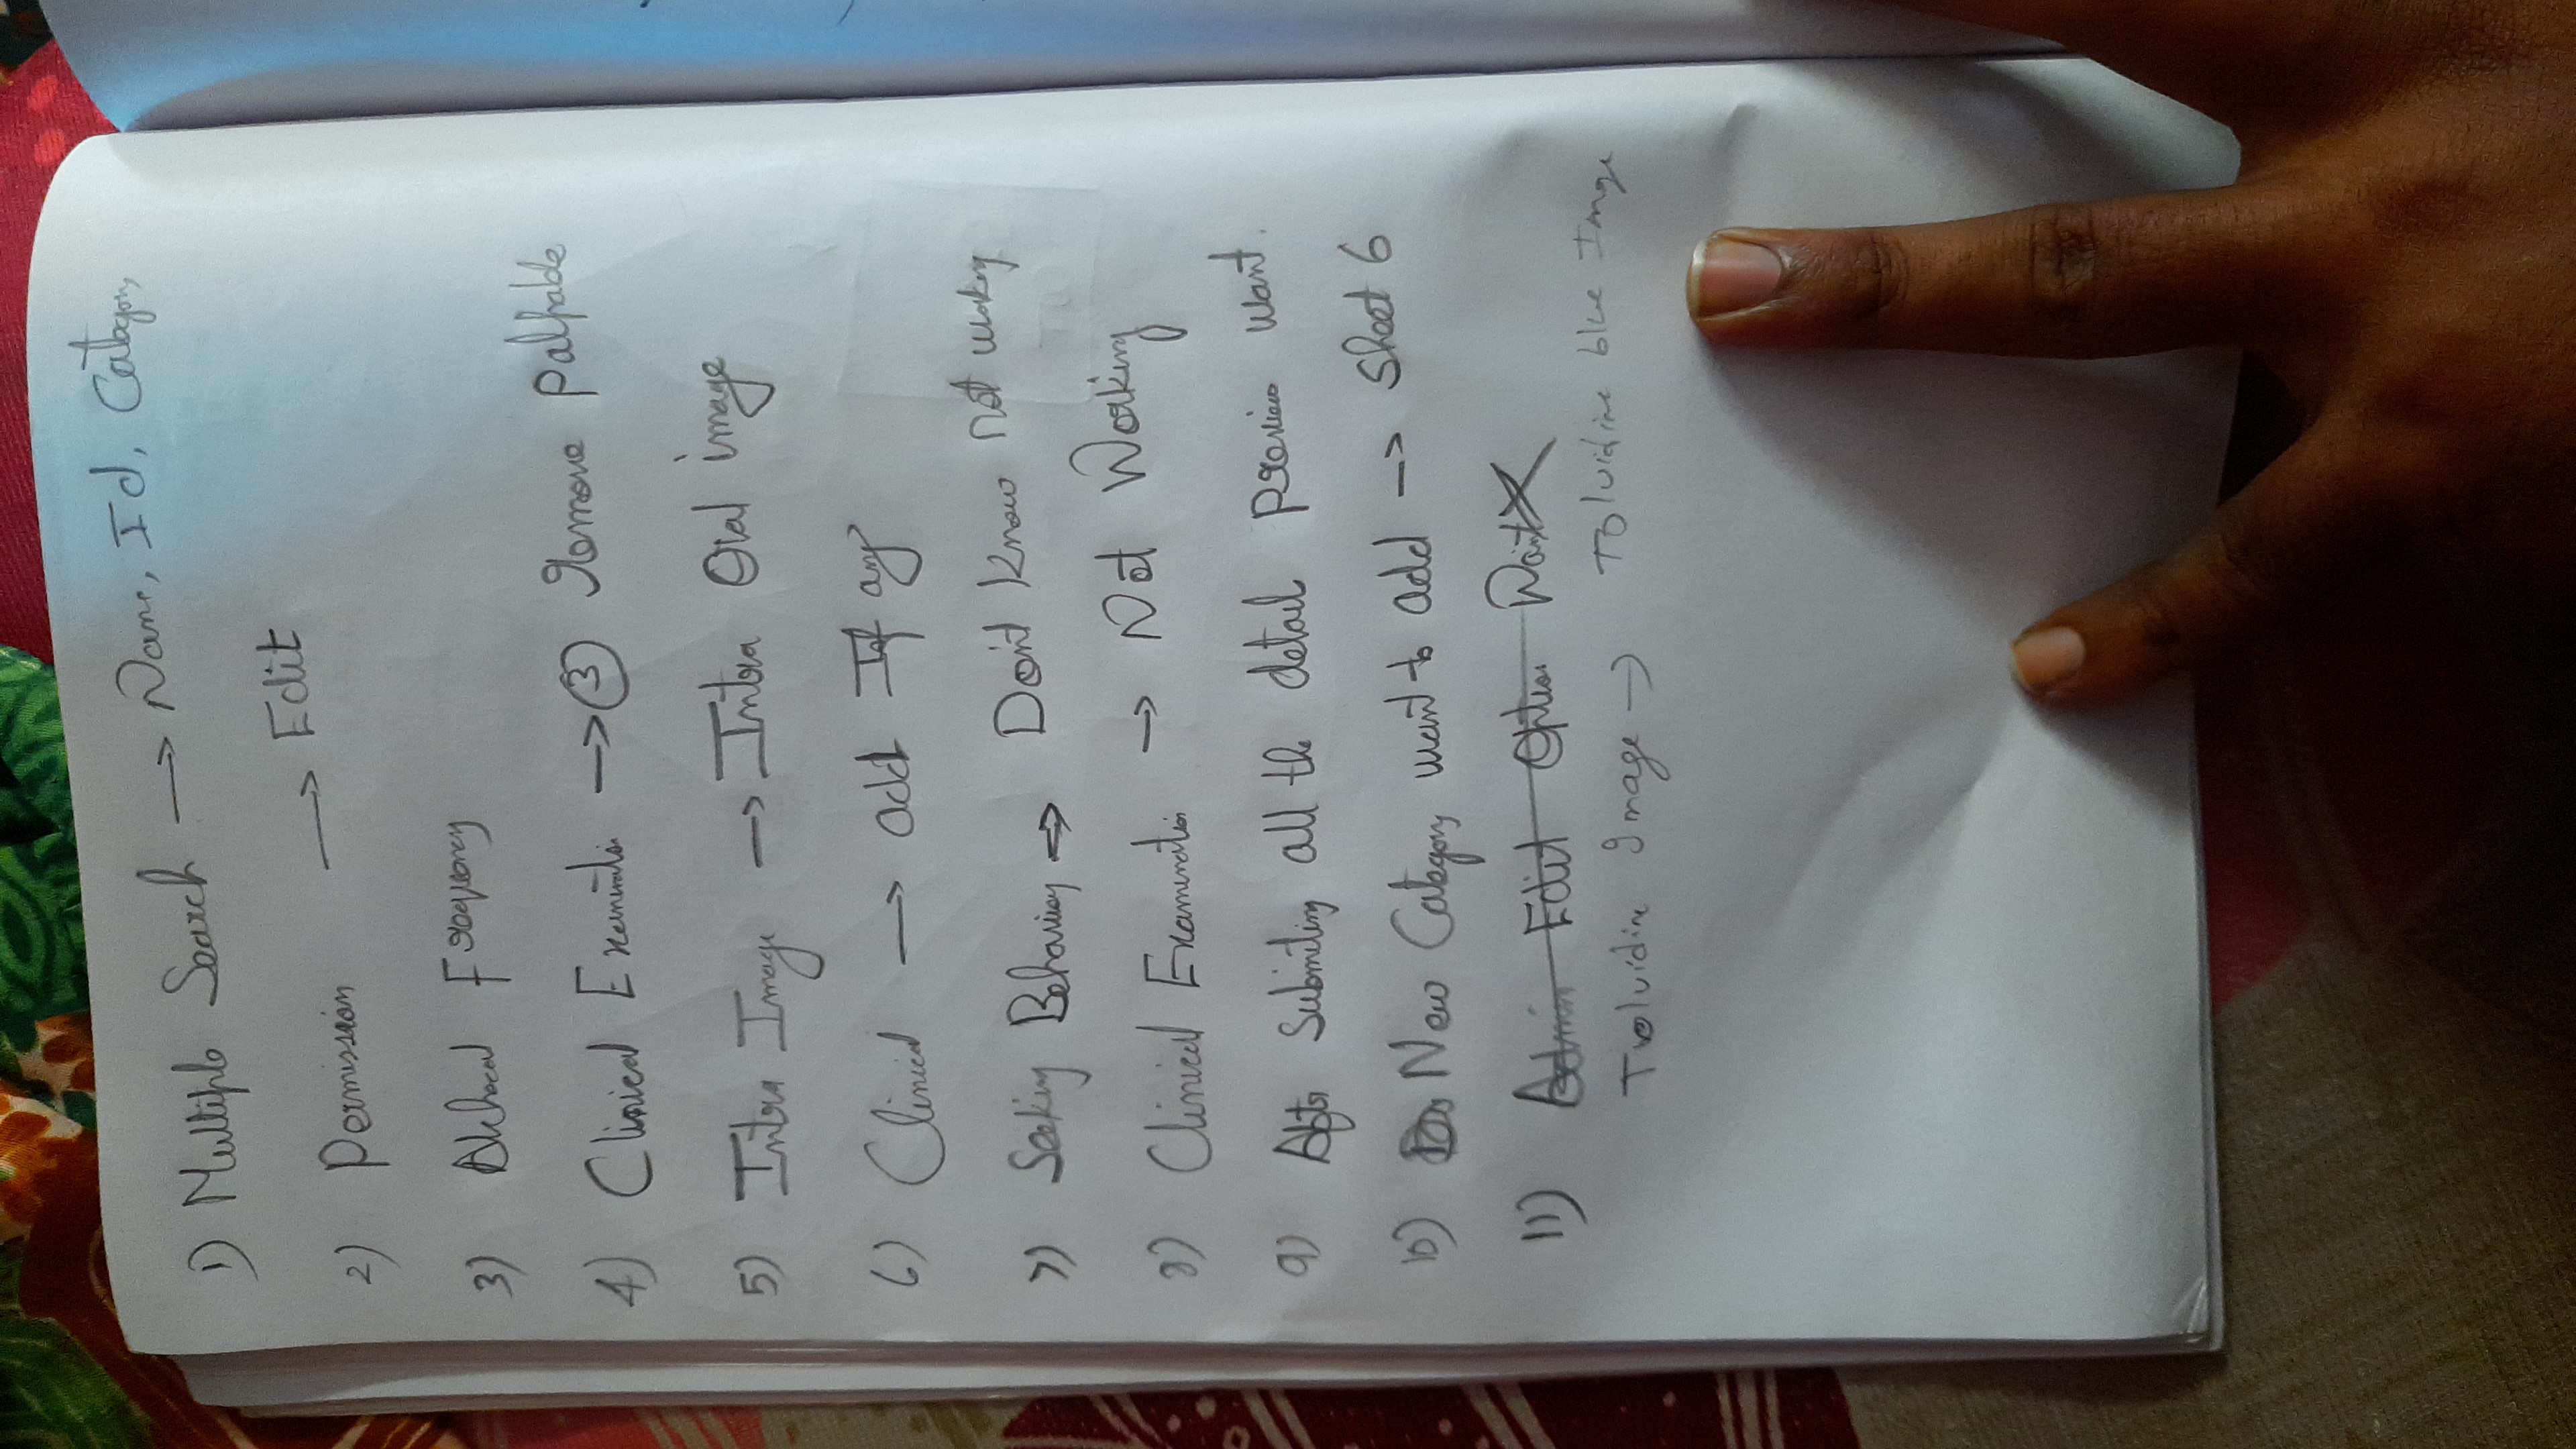 1) Multiple Search → Name, Id, Category
2) Permission → Edit
3) Alchocal Frequency
4) Clinical Examination → ③ Remove Palpable
5) Intra Image → Intra Oral image
6) Clinical → add If any
7) Seeking Behaviour → Don't Know not working
8) Clinical Examination → Not Working
9) After Submiting all the detail Preview want.
10) New Category want to add → Sheet 6
11) Admin Edit Option Want
Toluidine Image → Toluidine blue Image